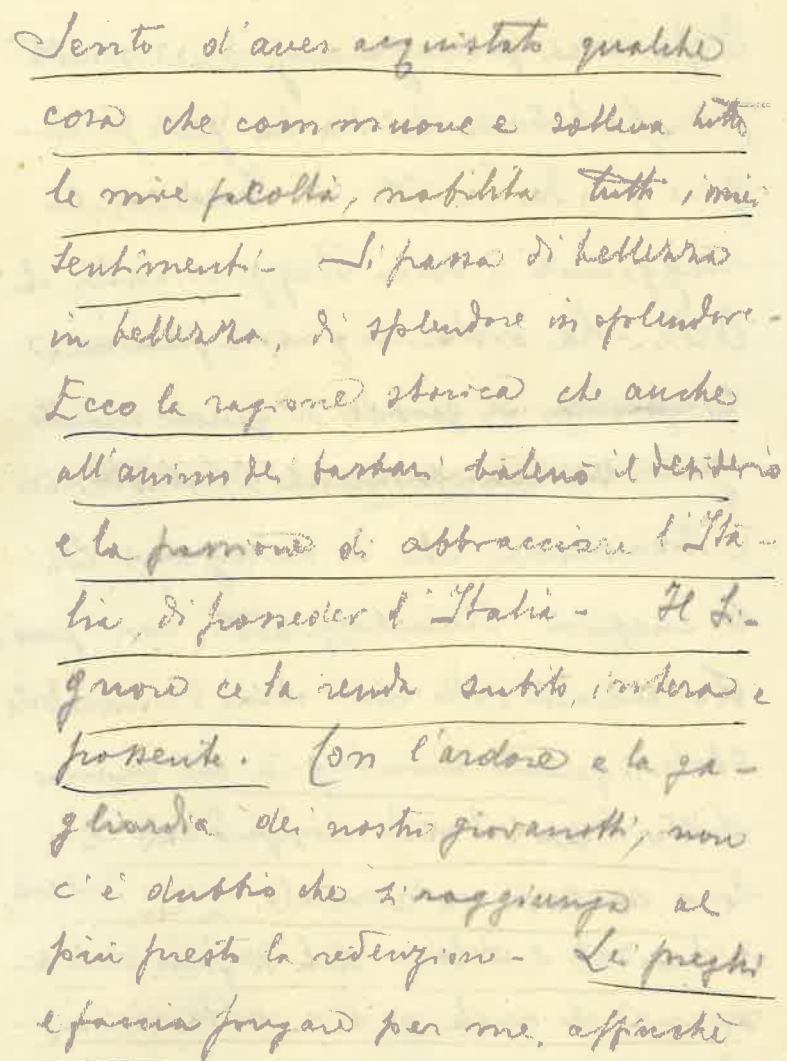 Sento d'aver acquistato qualche
cosa che commuove e solleva tutte
le mie facoltà, nobilita tutti i miei
sentimenti - Si passa di bellezza
in bellezza, di splendore in splendore -
Ecco la ragione storica che anche
all'animo dei barbari balenò il desiderio
e la passione di abbracciare l'Ita-
lia, di posseder l'Italia - Il Si-
gnore ce la renda subito, intera e
possente. Con l'ardore e la ga-
gliardia dei nostri giovanotti, non
c'è dubbio che si raggiunga al
più presto la redenzione - Lei preghi
e faccia pregare per me, affinchè